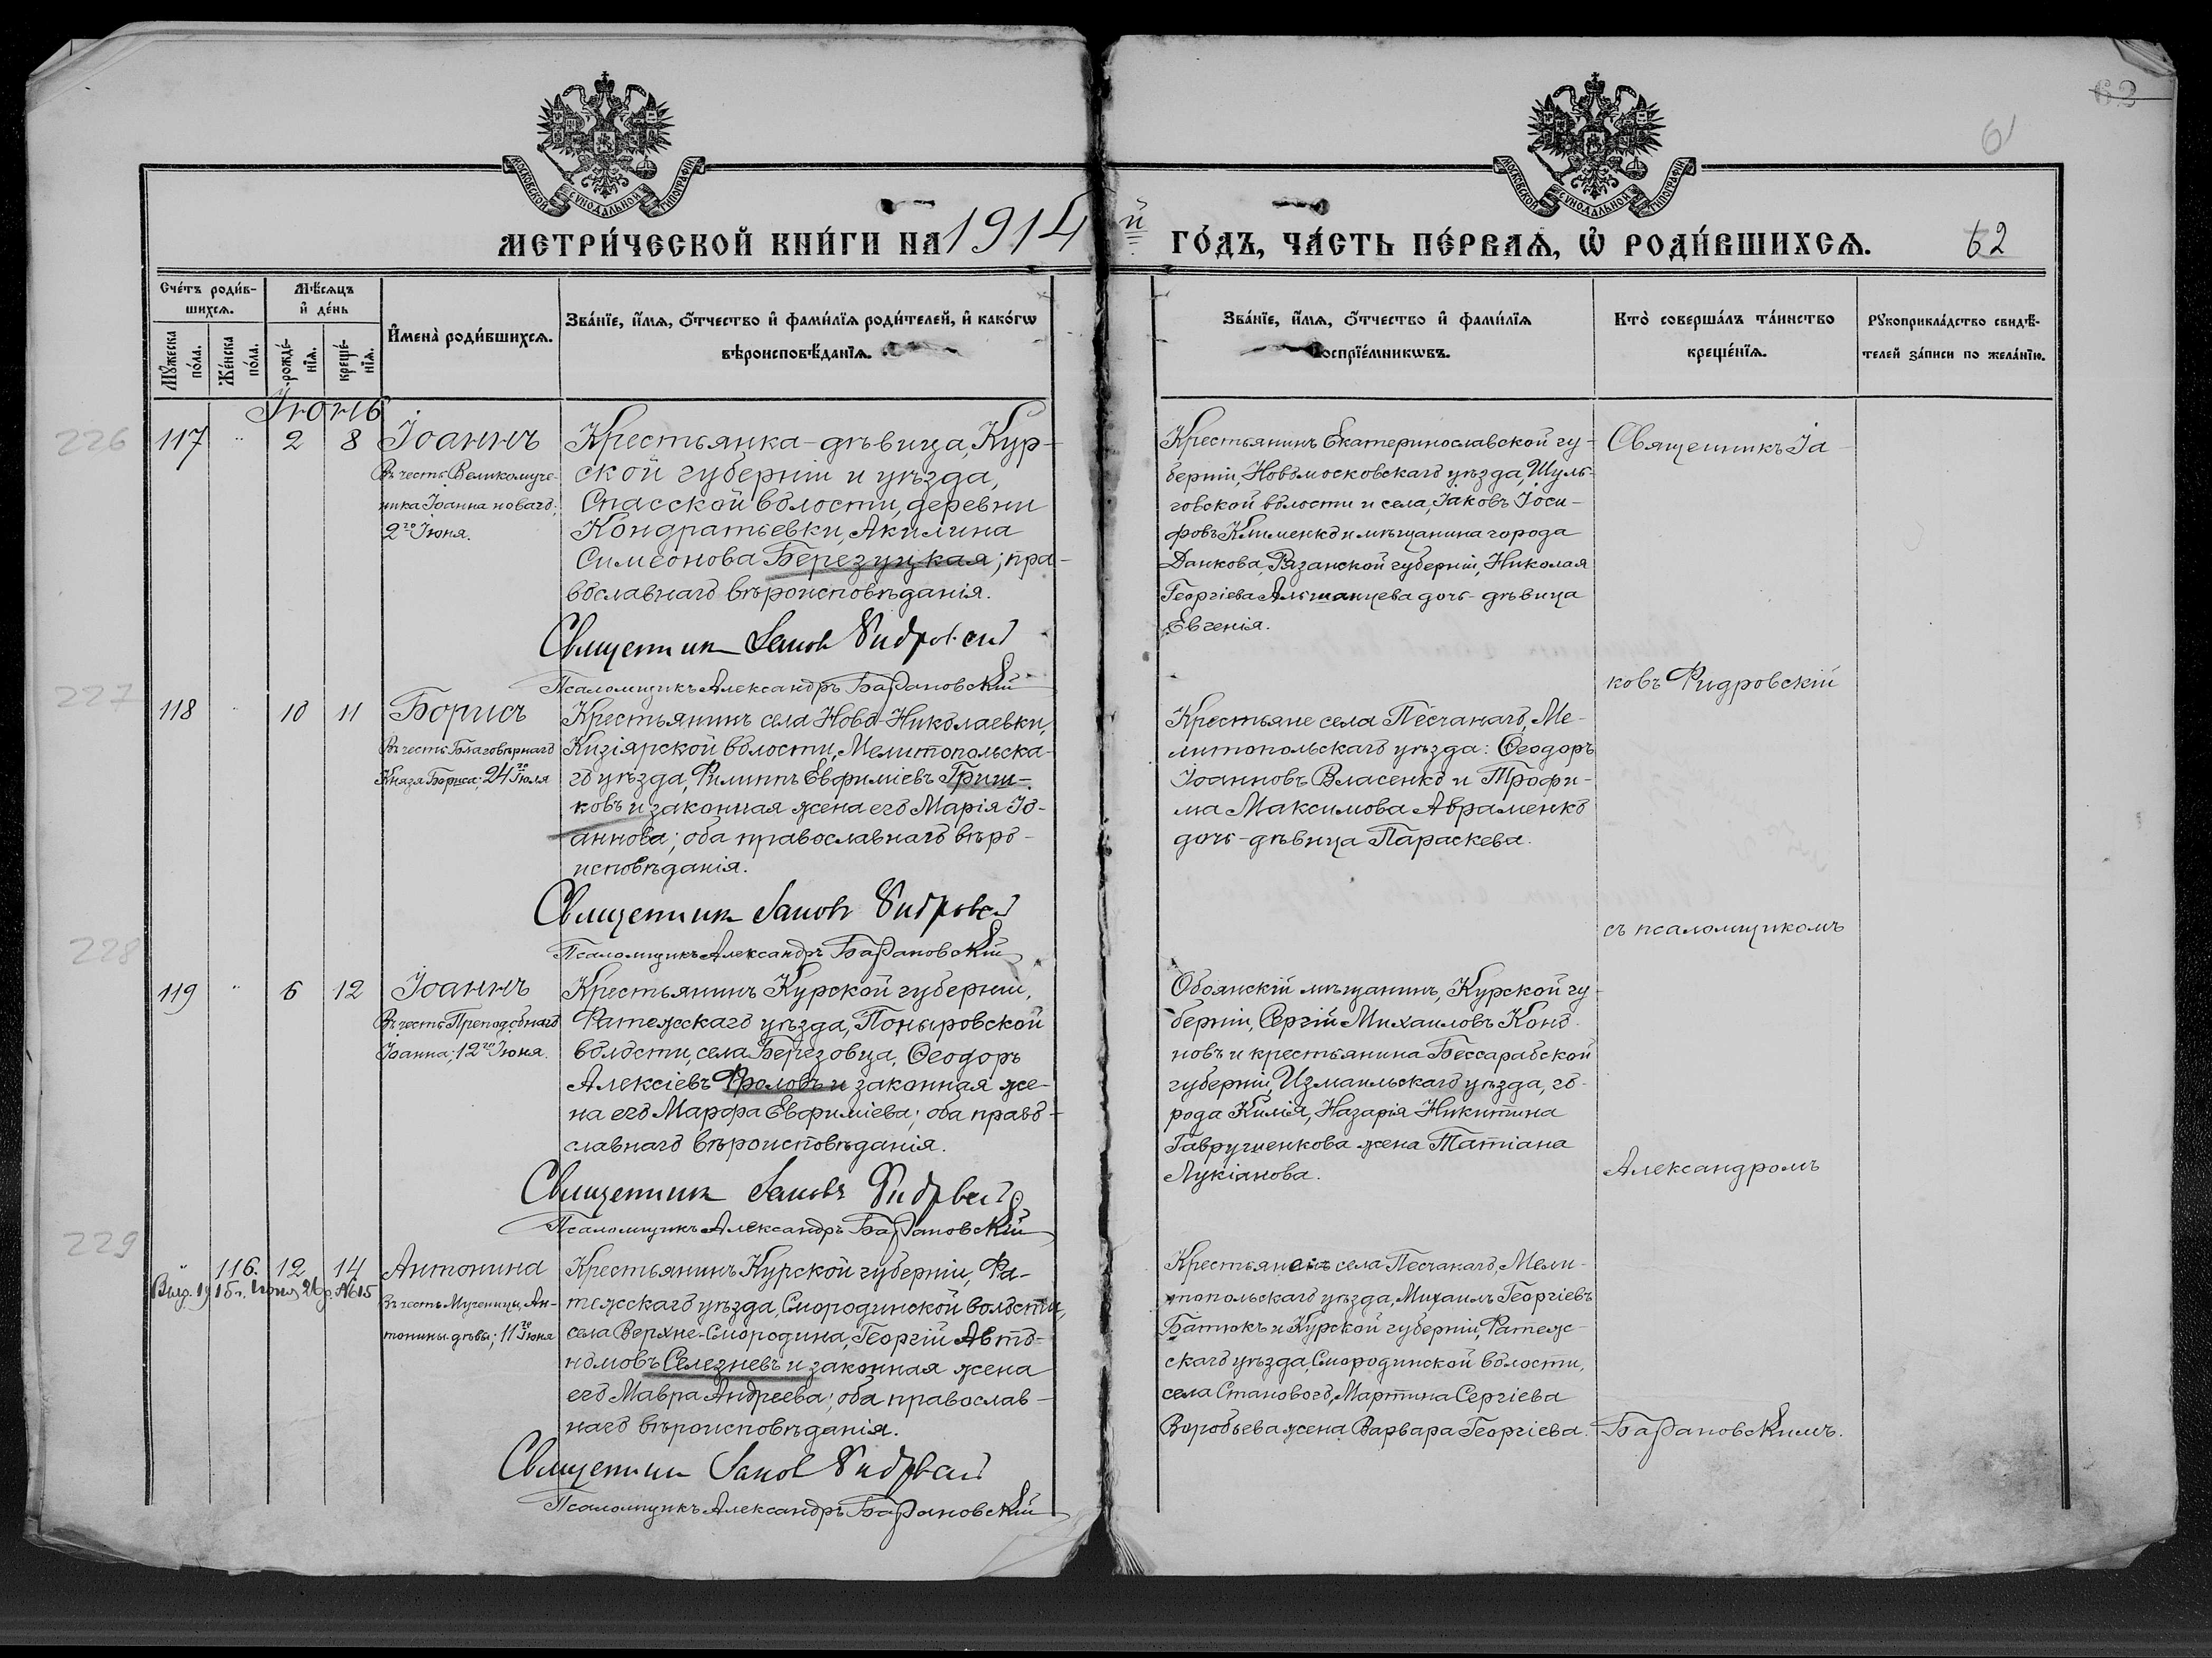 62
61
МОСКОВСКОЙ СѴНОДАЛЬНОЙ ТИПОГРАФІИ
МОСКОВСКОЙ СѴНОДАЛЬНОЙ ТИПОГРАФІИ
МЕТРИ́ЧЕСКОЙ КНИ́ГИ НА 1914 й ГО́ДЪ, ЧА́СТЬ ПЕ́РВАѦ, Ѡ҆ РОДИ́ВШИХСѦ.
62
Сче́тъ роди́в-
шихсѧ.
Мѣ́сѧцъ
и҆ де́нь
Мꙋ́жеска
по́ла.
Же́нска
по́ла.
рожде́-
нїѧ.
креще́-
нїѧ.
И҆мена̀ роди́вшихсѧ.
Зва́нїе, и҆́мѧ, ѻ҆́тчество и҆ фами́лїѧ роди́телей, и҆ како́гѡ
вѣроисповѣ́данїѧ.
Зва́нїе, и҆́мѧ, ѻ҆́тчество и҆ фами́лїѧ
воспрїе́мникѡвъ.
Кто̀ соверша́лъ та́инство
креще́нїѧ.
Рꙋкоприкла́дство свидѣ́-
телей за́писи по жела́нїю.
Іюнь
226
117 " 2 8 Іоаннъ
Въ честь Великомуче-
ника Іоанна новаго;
2го Іюня.
Крестьянка-дѣвица, Кур-
ской губерніи и уѣзда,
Спасской волости, деревни
Кондратьевки, Акилина
Симеонова Березуцкая; пра-
вославнаго вѣроисповѣданія.
Священник Іаков Фидровский
Псаломщикъ Александръ Барановскій
Крестьянинъ Екатеринославской гу-
берніи, Новомосковскаго уѣзда, Шуль-
говской волости и села, Іаковъ Іоси-
фовъ Клименко и мѣщанина города
Данкова, Рязанской губерніи, Николая
Георгіева Альшанцева дочь-дѣвица
Евгенія.
Священникъ Іа-
ковъ Фидровскій
227
118 " 10 11 Борисъ
Въ честь Благовѣрнаго
Князя Бориса; 24го Іюля
Крестьянинъ села Ново-Николаевки,
Кизіярской волости, Мелитопольска-
го уѣзда, Филиппъ Евфиміевъ Гриш-
ковъ и законная жена его Марія Іо-
аннова; оба православнаго вѣро-
исповѣданія.
Священник Іаковъ Фидровский
Псаломщикъ Александръ Барановскій
Крестьяне села Песчанаго, Ме-
литопольскаго уѣзда: Ѳеодоръ
Іоанновъ Власенко и Трофи-
ма Максимова Авраменко
дочь-дѣвица Параскева.
съ псаломщикомъ
228
119 " 6 12 Іоаннъ
Въ честь Преподобнаго
Іоанна; 12го Іюня.
Крестьянинъ Курской губерніи,
Фатежскаго уѣзда, Поныровской
волости, села Березовца, Ѳеодоръ
Алексіевъ Фроловъ и законная же-
на его Марфа Евфиміева; оба право-
славнаго вѣроисповѣданія.
Священник Іаковъ Фидровский
Псаломщикъ Александръ Барановскій
Обоянскій мѣщанинъ, Курской гу-
берніи, Сергій Михаиловъ Коно-
новъ и крестьянина Бессарабской
губерніи, Измаильскаго уѣзда, го-
рода Килія, Назарія Никитина
Гаврушенкова жена Татіана
Лукіанова.
Александромъ
229
" 116. 12 14 Антонина
Выд. 1915 г. Іюня 26 д. № 615
Въ честь Мученицы Ан-
тонины дѣвы; 11го Іюня
Крестьянинъ Курской губерніи, Фа-
тежскаго уѣзда, Смородинской волости,
села Верхне-Смородина, Георгій Авто-
номовъ Селезневъ и законная жена
его Мавра Андреева; оба православ-
наго вѣроисповѣданія.
Священник Іаков Фидровский
Псаломщикъ Александръ Барановскій
Крестьянинъ села Песчанаго, Мели-
топольскаго уѣзда, Михаилъ Георгіевъ
Батюкъ и Курской губерніи, Фатеж-
скаго уѣзда, Смородинской волости,
села Станового, Мартина Сергіева
Воробьева жена Варвара Георгіева.
Барановскимъ.